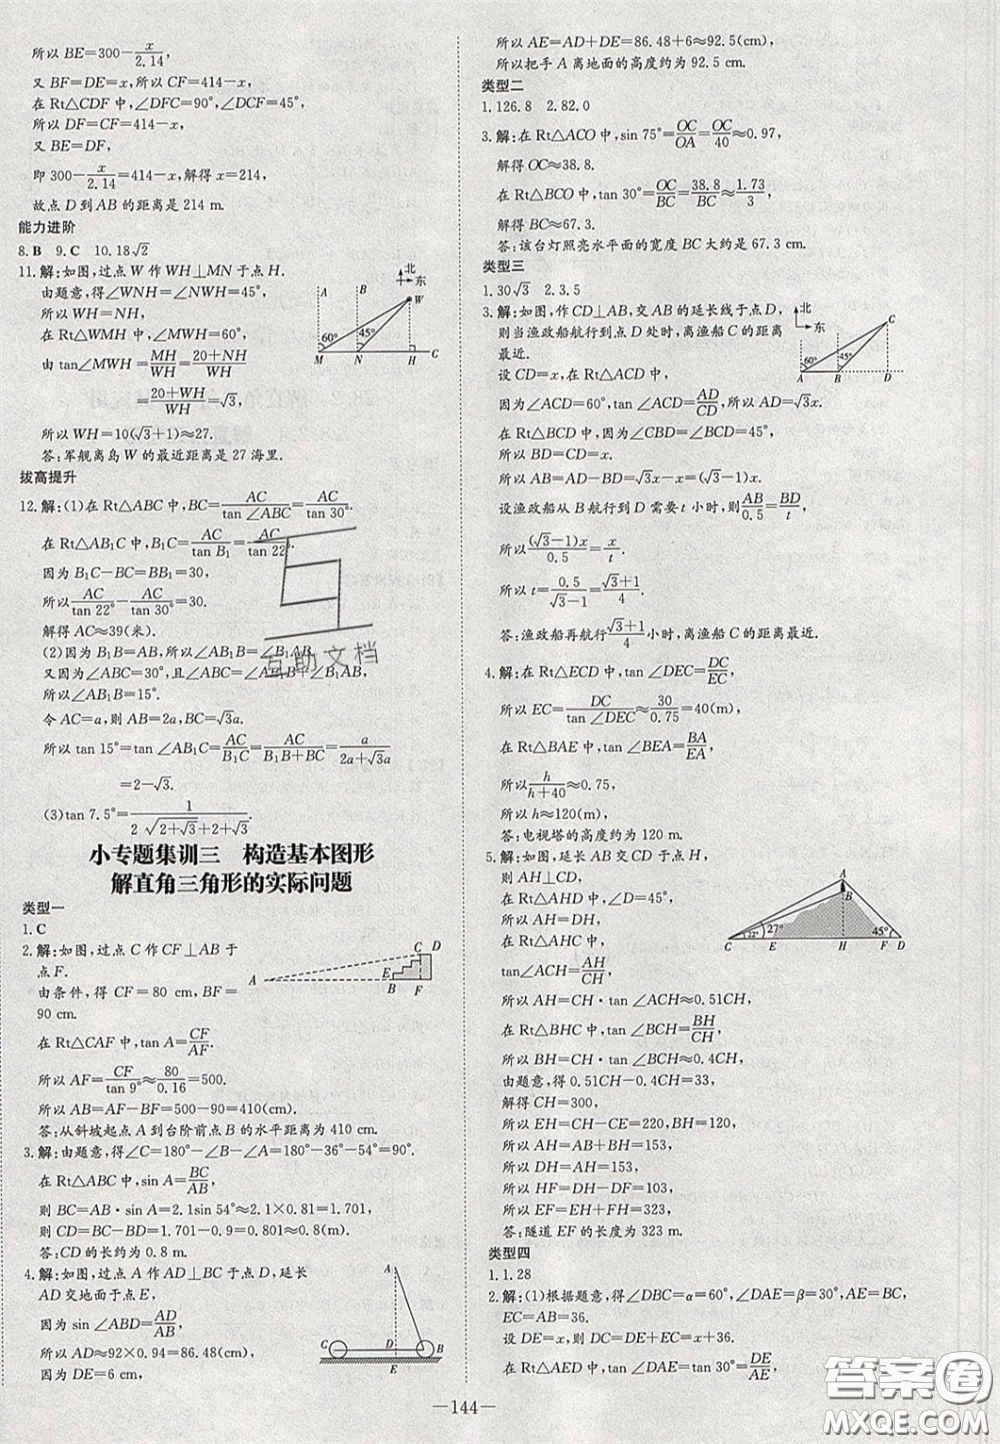 所以 BE=300-x/2.14,
又 BF=DE=x,所以 CF=414-x,
在 Rt△CDF 中,∠DFC=90°,∠DCF=45°,
所以 DF=CF=414-x,
又 BE=DF,
即 300-x/2.14=414-x,解得 x=214,
故点 D 到 AB 的距离是 214 m.
能力进阶
8.B 9.C 10.18√2
11.解:如图,过点 W 作 WH⊥MN 于点 H.
由题意,得∠WNH=∠NWH=45°,
所以 WH=NH,
在 Rt△WMH 中,∠MWH=60°,
由 tan∠MWH=MH/WH=(20+NH)/WH
=(20+WH)/WH=√3,
所以 WH=10(√3+1)≈27.
答:军舰离岛 W 的最近距离是 27 海里.
北
东
A
B
W
60°
45°
M
N
H
C
拔高提升
12.解:(1)在 Rt△ABC 中,BC=AC/tan∠ABC=AC/tan 30°.
在 Rt△AB₁C 中,B₁C=AC/tan B₁=AC/tan 22°.
因为 B₁C-BC=BB₁=30,
所以 AC/tan 22°-AC/tan 30°=30.
解得 AC≈39(米).
(2)因为 B₁B=AB,所以∠B₁=∠B₁AB.
又因为∠ABC=30°,且∠ABC=∠B₁+∠B₁AB,
所以∠AB₁B=15°.
令 AC=a,则 AB=2a,BC=√3a.
所以 tan 15°=tan∠AB₁C=AC/B₁C=AC/(B₁B+BC)=a/(2a+√3a)
=2-√3.
(3)tan 7.5°=1/(2√(2+√3)+2+√3).
互助文档
小专题集训三 构造基本图形
解直角三角形的实际问题
类型一
1.C
2.解:如图,过点 C 作 CF⊥AB 于
点 F.
由条件,得 CF=80 cm,BF=
90 cm.
在 Rt△CAF 中,tan A=CF/AF.
所以 AF=CF/tan 9°≈80/0.16=500.
所以 AB=AF-BF=500-90=410(cm).
答:从斜坡起点 A 到台阶前点 B 的水平距离为 410 cm.
A
E
C
D
B
F
3.解:由题意,得∠C=180°-∠B-∠A=180°-36°-54°=90°.
在 Rt△ABC 中,sin A=BC/AB,
则 BC=AB·sin A=2.1sin 54°≈2.1×0.81=1.701,
则 CD=BC-BD=1.701-0.9=0.801≈0.8(m).
答:CD 的长约为 0.8 m.
4.解:如图,过点 A 作 AD⊥BC 于点 D,延长
AD 交地面于点 E,
因为 sin∠ABD=AD/AB,
所以 AD≈92×0.94=86.48(cm),
因为 DE=6 cm,
A
C
D
B
E
所以 AE=AD+DE=86.48+6≈92.5(cm)
所以把手 A 离地面的高度约为 92.5 cm.
类型二
1.126.8 2.82.0
3.解:在 Rt△ACO 中,sin 75°=OC/OA=OC/40≈0.97,
解得 OC≈38.8.
在 Rt△BCO 中,tan 30°=OC/BC=38.8/BC≈1.73/3,
解得 BC≈67.3.
答:该台灯照亮水平面的宽度 BC 大约是 67.3 cm.
类型三
1.30√3 2.3.5
3.解:如图,作 CD⊥AB,交 AB 的延长线于点 D,
则当渔政船航行到点 D 处时,离渔船 C 的距离
最近.
设 CD=x,在 Rt△ACD 中,
因为∠ACD=60°,tan∠ACD=AD/CD,所以 AD=√3x.
在 Rt△CBD 中,因为∠CBD=∠BCD=45°,
所以 BD=CD=x.
所以 AB=AD-BD=√3x-x=(√3-1)x.
设渔政船从 B 航行到 D 需要 t 小时,则 AB/0.5=BD/t,
所以(√3-1)x/0.5=x/t.
所以 t=0.5/(√3-1)=(√3+1)/4.
答:渔政船再航行(√3+1)/4小时,离渔船 C 的距离最近.
北
东
C
60°
45°
A
B
D
4.解:在 Rt△ECD 中,tan∠DEC=DC/EC,
所以 EC=DC/tan∠DEC≈30/0.75=40(m),
在 Rt△BAE 中,tan∠BEA=BA/EA,
所以 h/(h+40)≈0.75,
所以 h≈120(m).
答:电视塔的高度约为 120 m.
5.解:如图,延长 AB 交 CD 于点 H,
则 AH⊥CD,
在 Rt△AHD 中,∠D=45°,
所以 AH=DH,
在 Rt△AHC 中,
tan∠ACH=AH/CH,
所以 AH=CH·tan∠ACH≈0.51CH,
在 Rt△BHC 中,tan∠BCH=BH/CH,
所以 BH=CH·tan∠BCH≈0.4CH,
由题意,得 0.51CH-0.4CH=33,
解得 CH=300,
所以 EH=CH-CE=220,
BH=120,
所以 AH=AB+BH=153,
所以 DH=AH=153,
所以 HF=DH-DF=103,
所以 EF=EH+FH=323,
答:隧道 EF 的长度为 323 m.
A
B
22°
27°
45°
C
E
H
F
D
类型四
1.1.28
2.解:(1)根据题意,得∠DBC=α=60°,∠DAE=β=30°,AE=BC,
EC=AB=36.
设 DE=x,则 DC=DE+EC=x+36.
在 Rt△AED 中,tan∠DAE=tan 30°=DE/AE,
144
答案圈
MXQE.COM